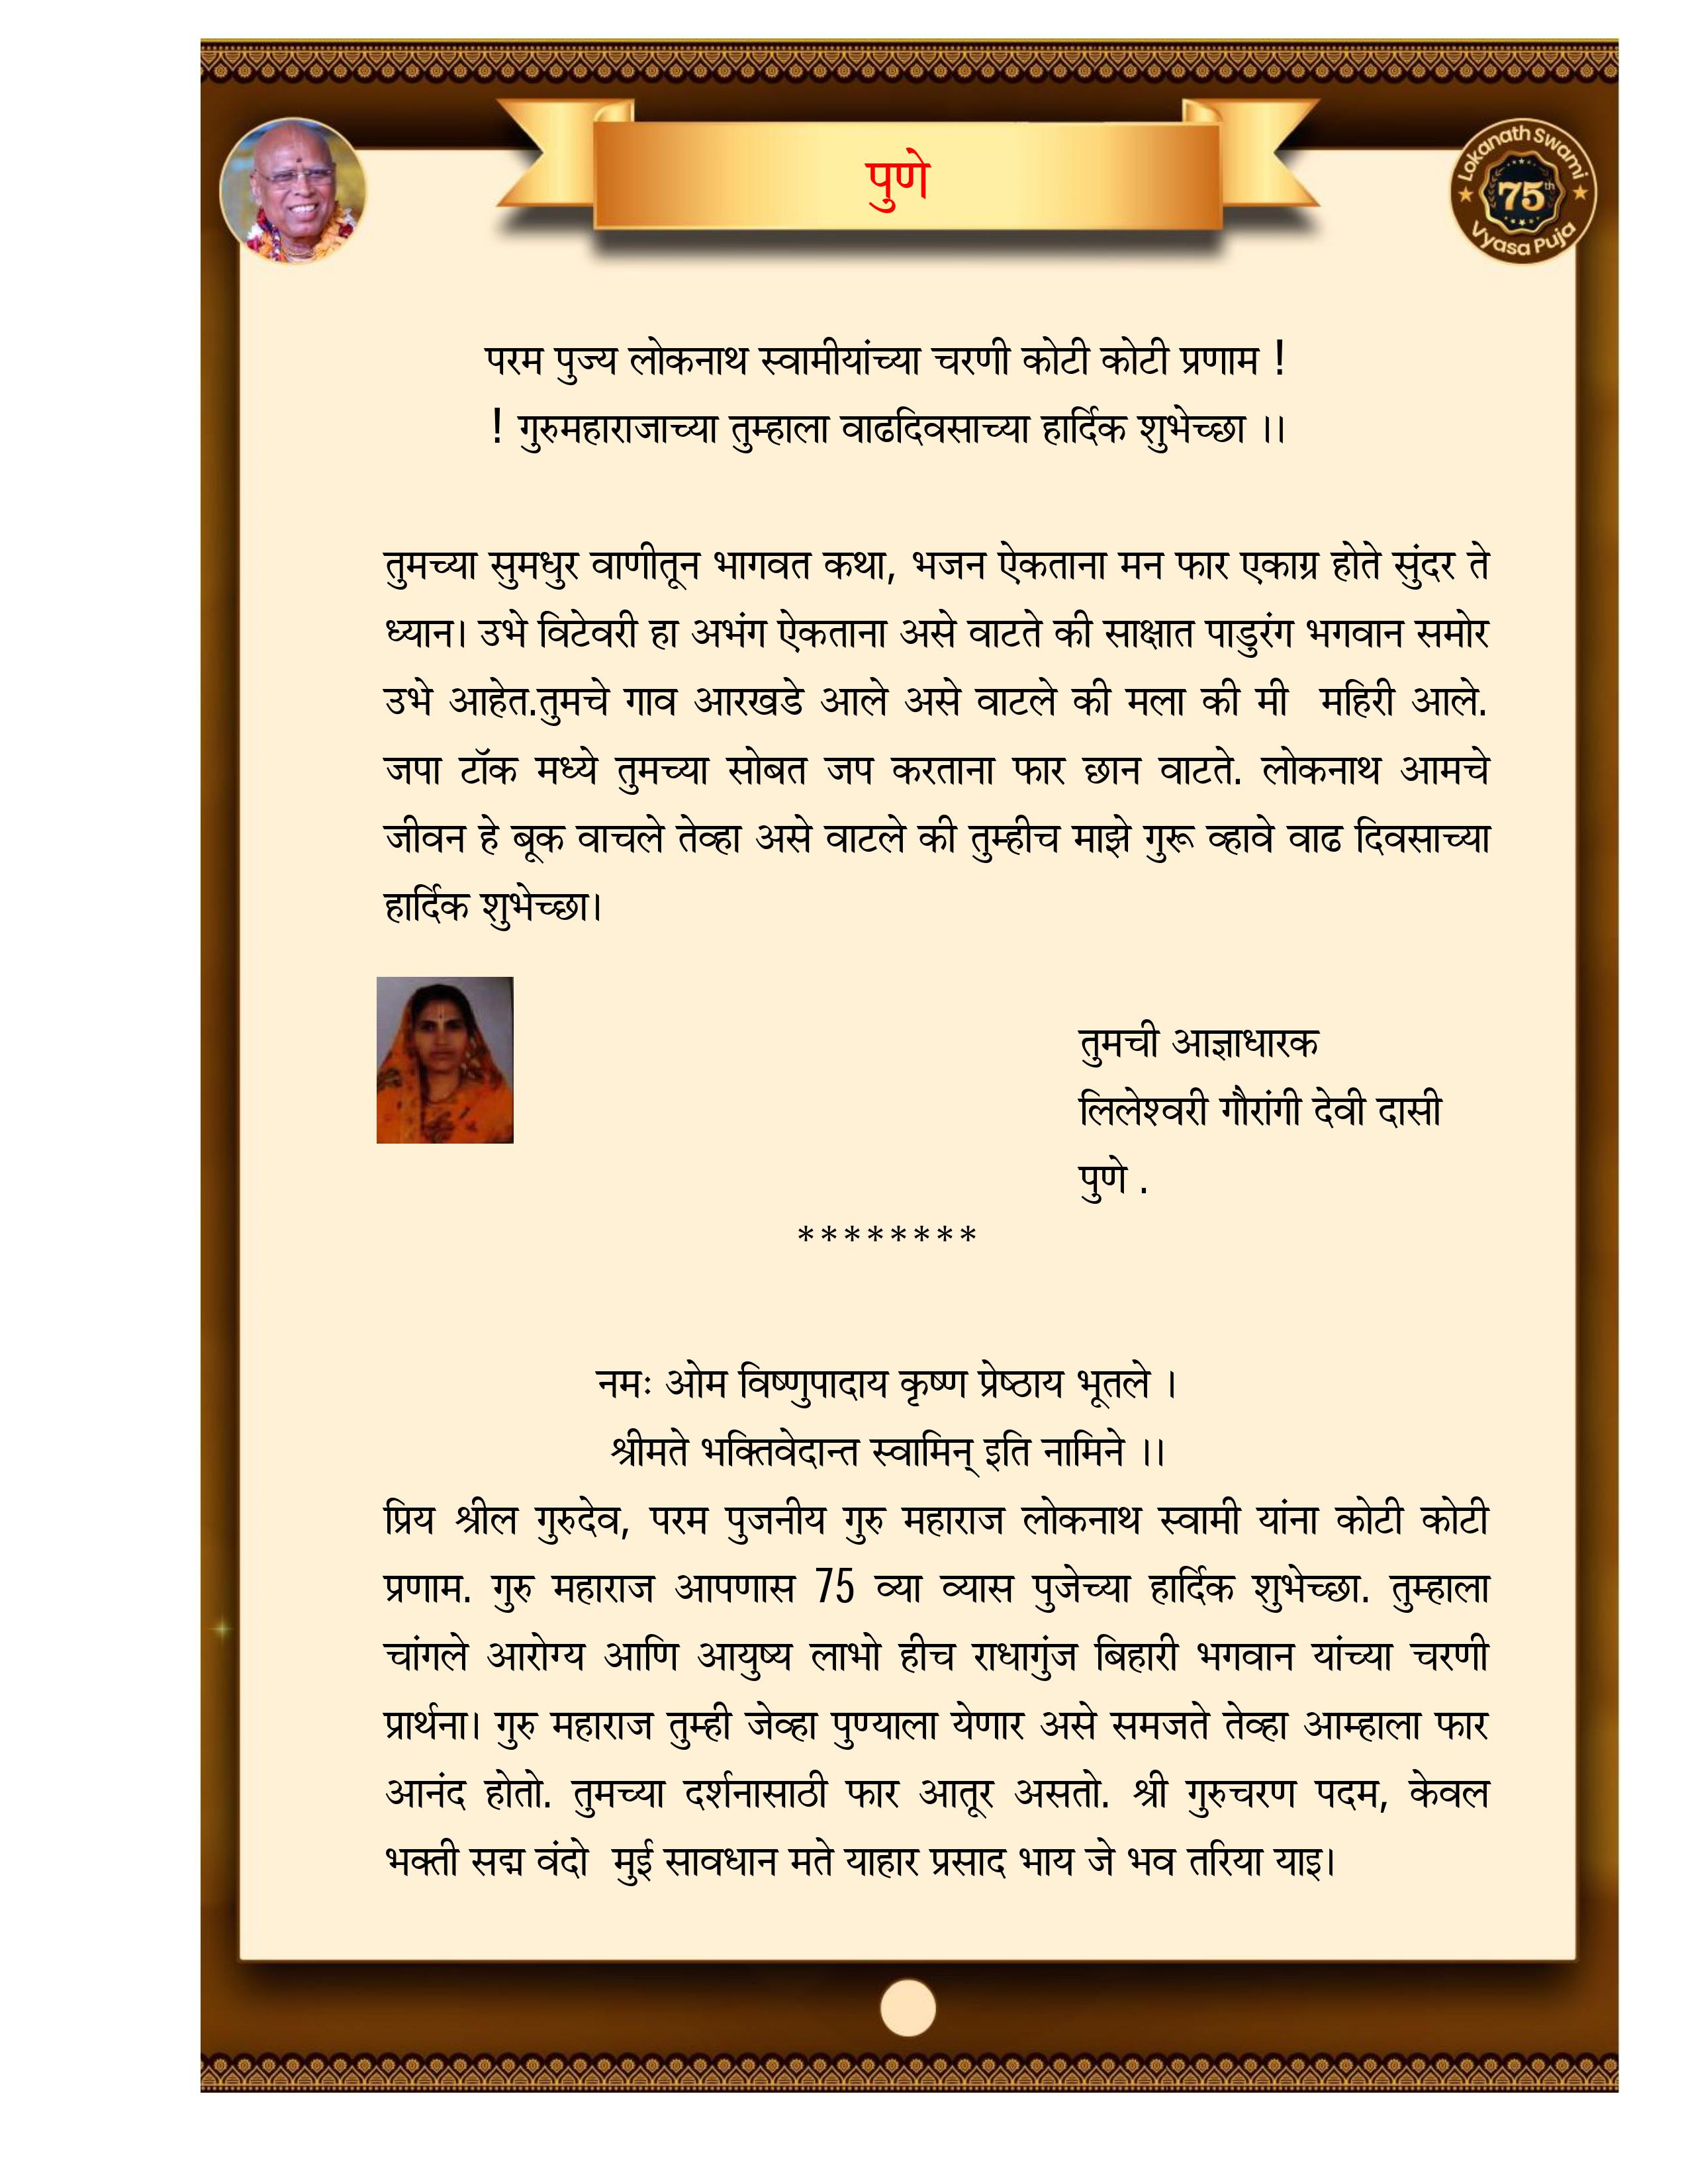 पुणे
Lokanath Swami
75th
Vyasa Puja
परम पुज्य लोकनाथ स्वामीयांच्या चरणी कोटी कोटी प्रणाम !
! गुरुमहाराजाच्या तुम्हाला वाढदिवसाच्या हार्दिक शुभेच्छा ।।
तुमच्या सुमधुर वाणीतून भागवत कथा, भजन ऐकताना मन फार एकाग्र होते सुंदर ते
ध्यान। उभे विटेवरी हा अभंग ऐकताना असे वाटते की साक्षात पाडुरंग भगवान समोर
उभे आहेत.तुमचे गाव आरखडे आले असे वाटले की मला की मी महिरी आले.
जपा टॉक मध्ये तुमच्या सोबत जप करताना फार छान वाटते. लोकनाथ आमचे
जीवन हे बूक वाचले तेव्हा असे वाटले की तुम्हीच माझे गुरू व्हावे वाढ दिवसाच्या
हार्दिक शुभेच्छा।
तुमची आज्ञाधारक
लिलेश्वरी गौरांगी देवी दासी
पुणे .
********
नमः ओम विष्णुपादाय कृष्ण प्रेष्ठाय भूतले ।
श्रीमते भक्तिवेदान्त स्वामिन् इति नामिने ।।
प्रिय श्रील गुरुदेव, परम पुजनीय गुरु महाराज लोकनाथ स्वामी यांना कोटी कोटी
प्रणाम. गुरु महाराज आपणास 75 व्या व्यास पुजेच्या हार्दिक शुभेच्छा. तुम्हाला
चांगले आरोग्य आणि आयुष्य लाभो हीच राधागुंज बिहारी भगवान यांच्या चरणी
प्रार्थना। गुरु महाराज तुम्ही जेव्हा पुण्याला येणार असे समजते तेव्हा आम्हाला फार
आनंद होतो. तुमच्या दर्शनासाठी फार आतूर असतो. श्री गुरुचरण पदम, केवल
भक्ती सद्म वंदो मुई सावधान मते याहार प्रसाद भाय जे भव तरिया याइ।